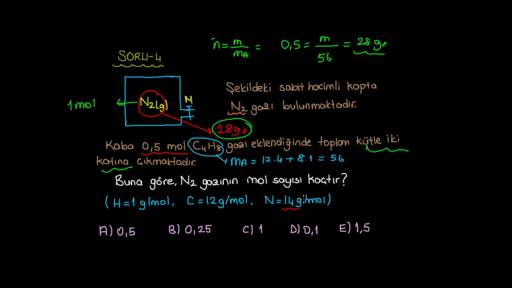 SORU-4
n = m/mA = 0,5 = m/56 = 28g
1mol N2(g) M
Şekildeki sabit hacimli kapta
N2 gazı bulunmaktadır.
28g
Kaba 0,5 mol C4H8 gazı eklendiğinde toplam kütle iki
katına çıkmaktadır.
mA = 12.4 + 8.1 = 56
Buna göre, N2 gazının mol sayısı kaçtır?
(H=1 g/mol, C=12g/mol, N=14g/mol)
A) 0,5 B) 0,25 C) 1 D) 0,1 E) 1,5